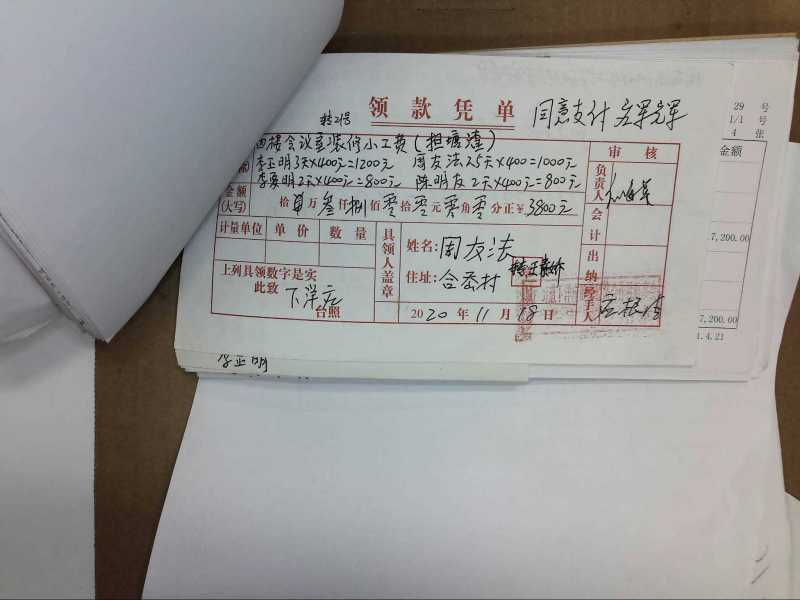 29 号
1/1 号
4 张
金额
7,200.00
7,200.00
1.4.21
领款凭单
同意支付
四楼会议室装修小工费(担墙渣)
李正明3天×400元=1200元 周友法2.5天×400=1000元
李要明2天×400元=800元 陈明友2天×400元=800元
金额
(大写)
拾 万 叁仟捌佰零拾零元零角零分正¥3800元
审核
负责人
会计
出纳
经手人
计量单位 单价 数量
具领人盖章
姓名:周友法
住址:合岙村
上列具领数字是实
此致
下洋应
台照
2020年11月18日
李正明